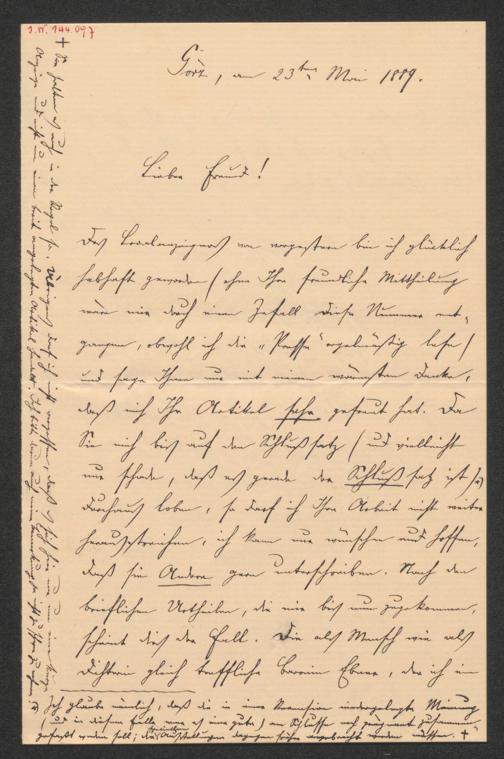 I.N. 144.097
Görz, am 23ten Mai 1889.
Lieber Freund!
Des Localanzeigers von vorgestern bin ich glücklich
habhaft geworden (ohne Ihre freundliche Mittheilung
wäre mir durch einen Zufall diese Nummer ent-
gangen, obwohl ich die „Presse" regelmäßig lese)
und sage Ihnen nun mit meinem wärmsten Danke,
daß mich Ihr Artikel sehr gefreut hat. Da
Sie mich bis auf den Schlußsatz (und vielleicht
nur schade, daß es gerade der Schlußsatz ist)
durchaus loben, so darf ich Ihre Arbeit nicht weiter
herausstreichen, ich kann nur wünschen und hoffen,
daß sie Andere gern unterschreiben. Nach den
brieflichen Urtheilen, die mir bis nun zugekommen,
scheint dies der Fall. Die als Mensch wie als
Dichterin gleich treffliche Baronin Ebner, der ich im
Ich glaube nämlich, daß die in einer Recension niedergelegte Meinung
(und in diesem Falle war es eine gute) am Schlusse noch prägnant zusammen-
gefaßt werden soll; die Ausstellungen dagegen früher angebracht werden müssen. +
+ Sie halten es auch in der Regel so. Übrigens darf ich nicht vergessen, daß es sich hier nur um eine